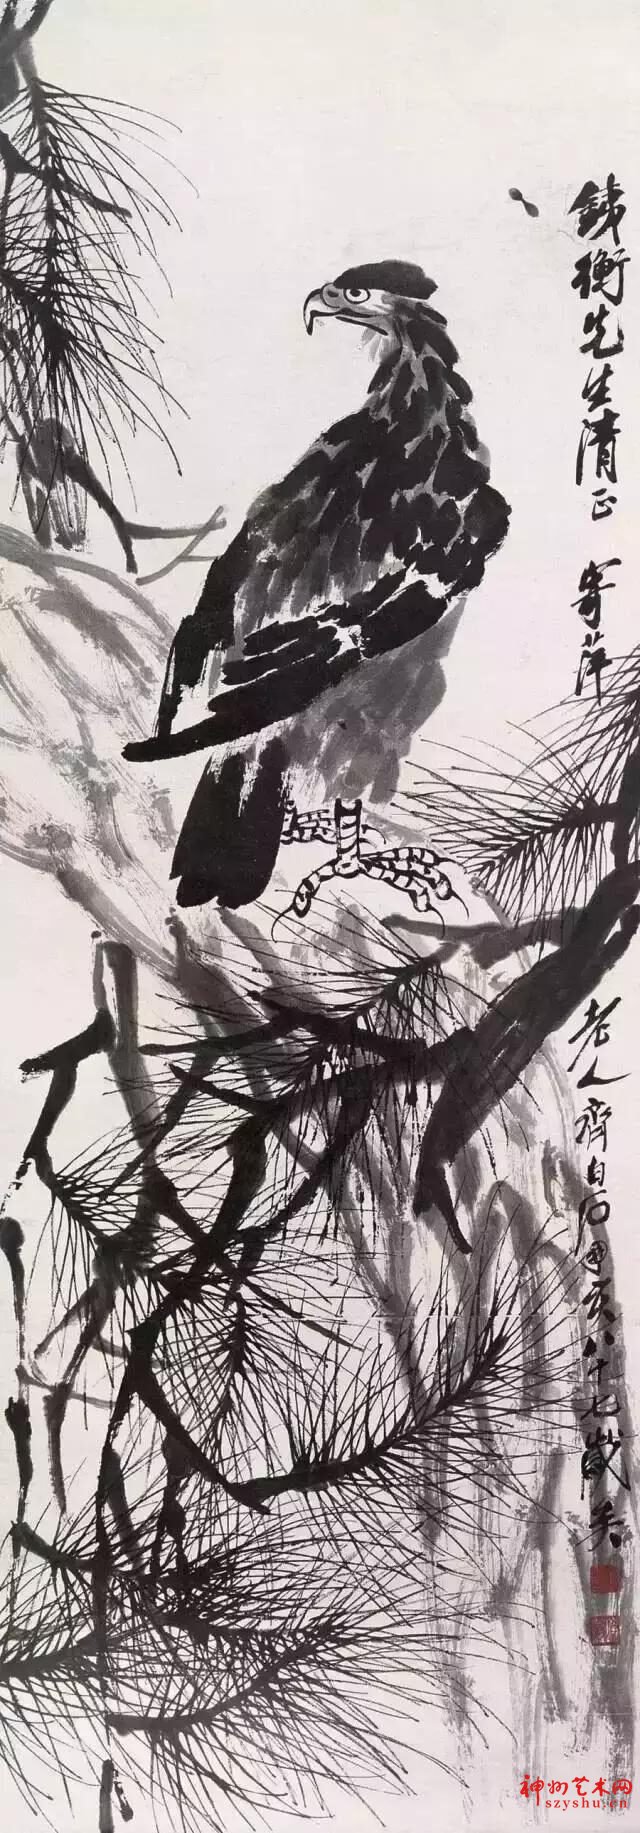 銕衡先生清正 寄萍老人齊白石亥八十七歲矣
神州艺术网
szyshu.cn